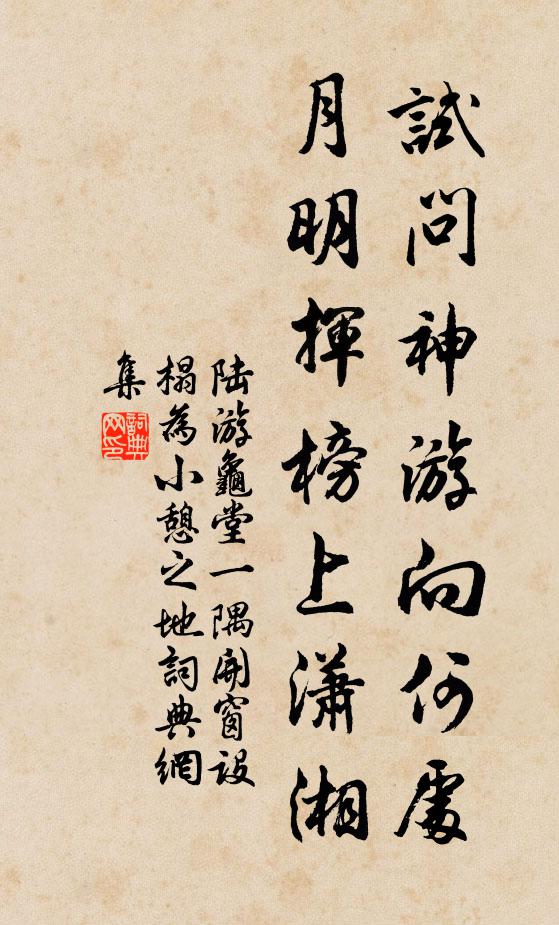 試問神游向何處
月明揮榜上瀟湘
陆游龜堂一隅開窗設
榻為小憩之地詞典網
集
詞典
网印